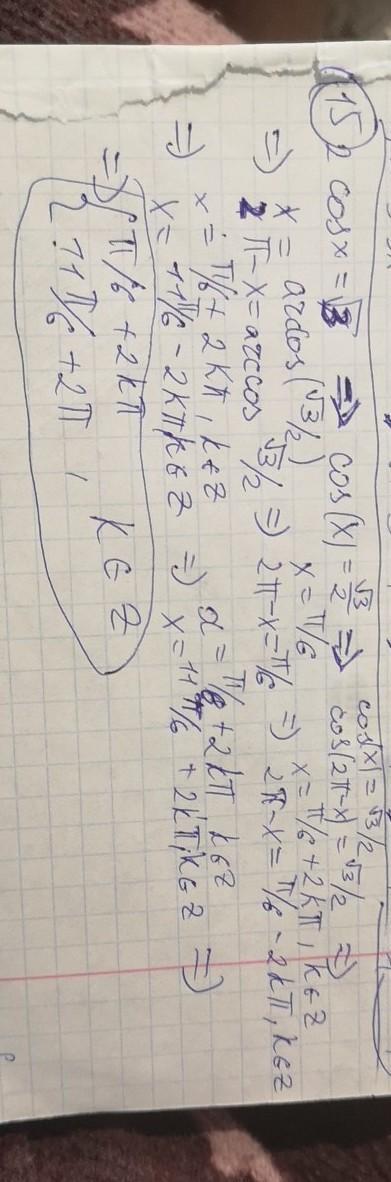 15 2 cosx = √3 => cos(x) = √3/2 => cos(x) = √3/2
cos(2π-x) = √3/2 =>
=> x = arccos(√3/2) x = π/6 x = π/6 + 2kπ, k∈Z
2π-x = arccos √3/2 => 2π-x = π/6 => 2π-x = π/6 - 2kπ, k∈Z
=> x = π/6 + 2kπ, k∈Z x = π/6 + 2kπ k∈Z
x = 11π/6 - 2kπ k∈Z => x = 11π/6 + 2kπ, k∈Z =>
=> { π/6 + 2kπ
11π/6 + 2π , k∈Z